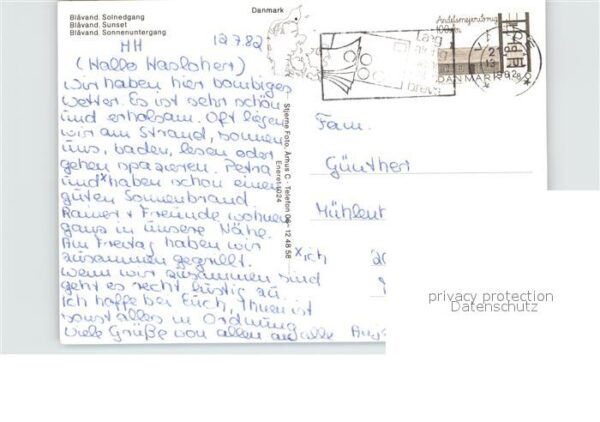 Blåvand. Solnedgang
Blåvand. Sunset
Blåvand. Sonnenuntergang
Danmark
HH 12.7.82
(Hallo Hasloher)
wir haben hier bombiges
Wetter. Es ist sehr schön
und erholsam. Oft liegen
wir am Strand, sonnen
uns, baden, lesen oder
gehen spazieren. Petra
und* haben schon einen
guten Sonnenbrand.
Rainer + Freunde wohnen
ganz in unsere Nähe.
Am Freitag haben wir
zusammen gegrillt.
Wenn wir zusammen sind
geht es recht lustig zu.
Ich hoffe bei Euch, Ihnen ist
sonst alles in Ordnung
viele Grüße von allen an alle
*ich
Stjerne Foto. Århus C - Telefon 06 - 12 48 58
Eneret 1024
Andelsmejeribrug
100 år
DANMARK
Læg
brevk
Fam.
Günther
Mühlent
20
privacy protection
Datenschutz